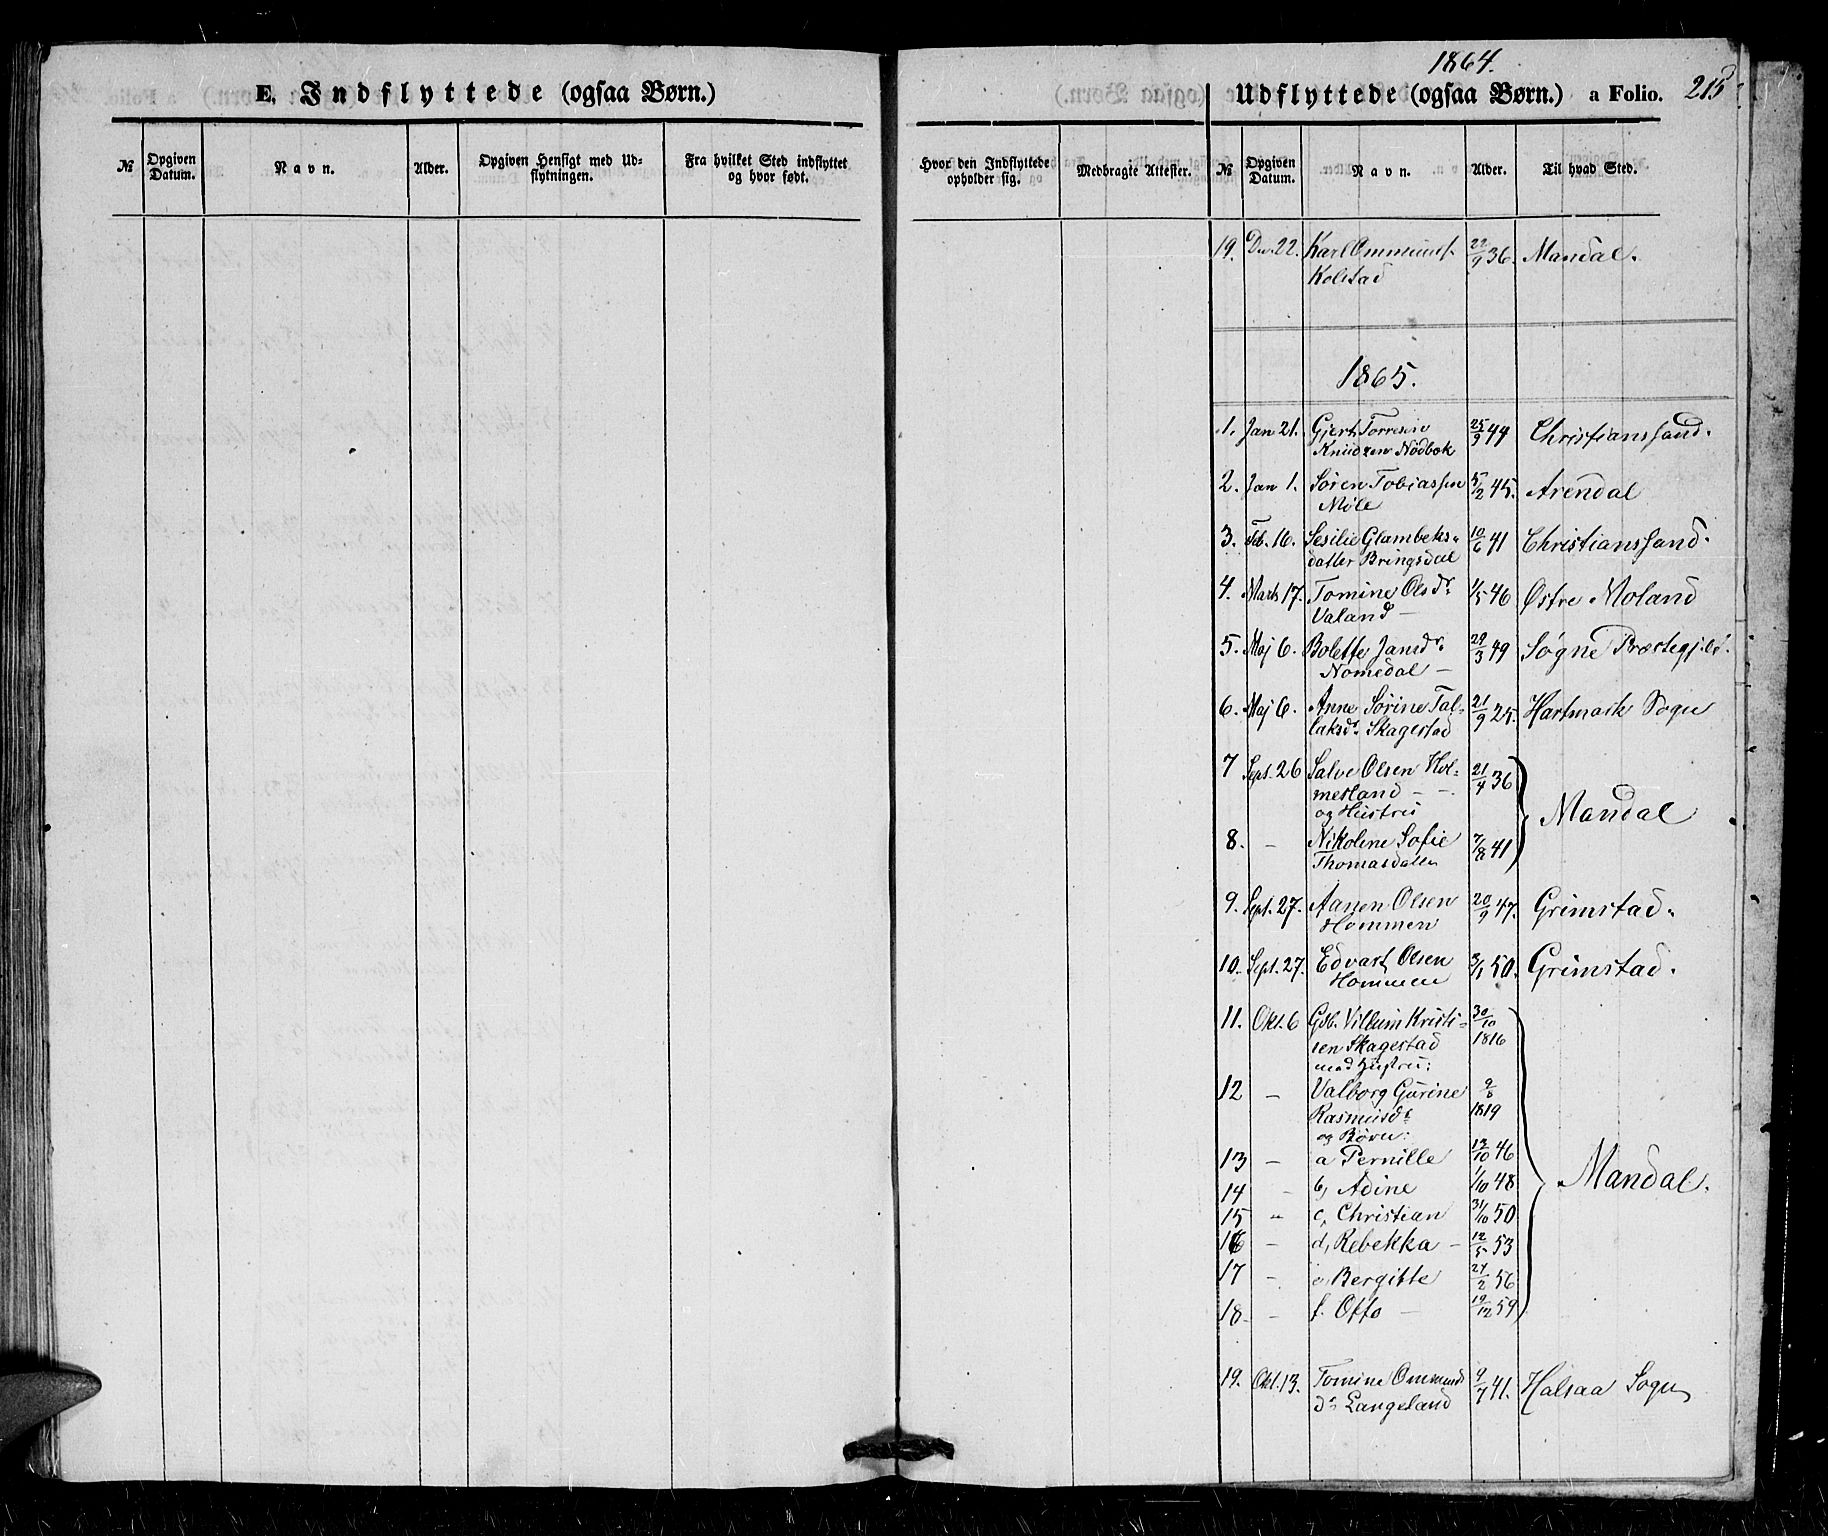 E. Indflyttede (ogsaa Børn.)
№ Opgiven Datum. Navn. Alder. Opgiven Hensigt med Ud= flytningen. Fra hvilket Sted indflyttet og hvor født.
Hvor den Indflyttede opholder sig. Medbragte Attester.
1864.
Udflyttede (ogsaa Børn.) a Folio. 215
№ Opgiven Datum. Navn. Alder. Til hvad Sted.
19. Dec. 22. Karl Ommunds. 22/9 36. Mandal.
Kolstad
1865.
1. Jan 21. Gjert Torresen 25/9 44 Christianssand.
Knudsen Nödbok
2. Jan 1. Søren Tobiassen 5/2 45. Arendal
Møle
3. Feb. 16. Sesilie Glambeks= 10/6 41 Christianssand.
datter Bringsdal
4. Marts 17. Tomine Olsdr. 1/5 46 Østre Moland
Valand —
5. Maj 6. Bolette Jansdr. 29/3 49 Søgne Præstegjeld.
Nomedal —
6. Maj 6. Anne Sørine Tal= 21/9 25. Hartmark Sogn
laksdr. Skagestad
7 Sept. 26 Salve Olsen Hol= 21/4 36
mesland — —
og Hustru
Mandal
8. — Nikoline Sofie 7/8 41
Thomasdatter
9. Sept. 27. Aanen Olsen 20/9 47. Grimstad.
Hommen
10. Sept. 27. Edvart Olsen 3/1 50. Grimstad.
Hommen
11. Okt. 6 Gdb. Villum Kristi= 30/10
sen Skagestad 1816
med Hustru:
12 — Valborg Gurine
Rasmusdr. 1819
og Børn:
13 — a Pernille 12/10 46
Mandal.
14 — b, Adine 1/10 48
15 " c, Christian 31/10 50
16 — d, Rebekka — 12/5 53
17 — e, Bergitte 27/2 56
18. — f. Otto — 19/12 59
19. Okt. 13. Tomine Ommunds 9/7 41. Halsaa Sogn
dr. Langeland